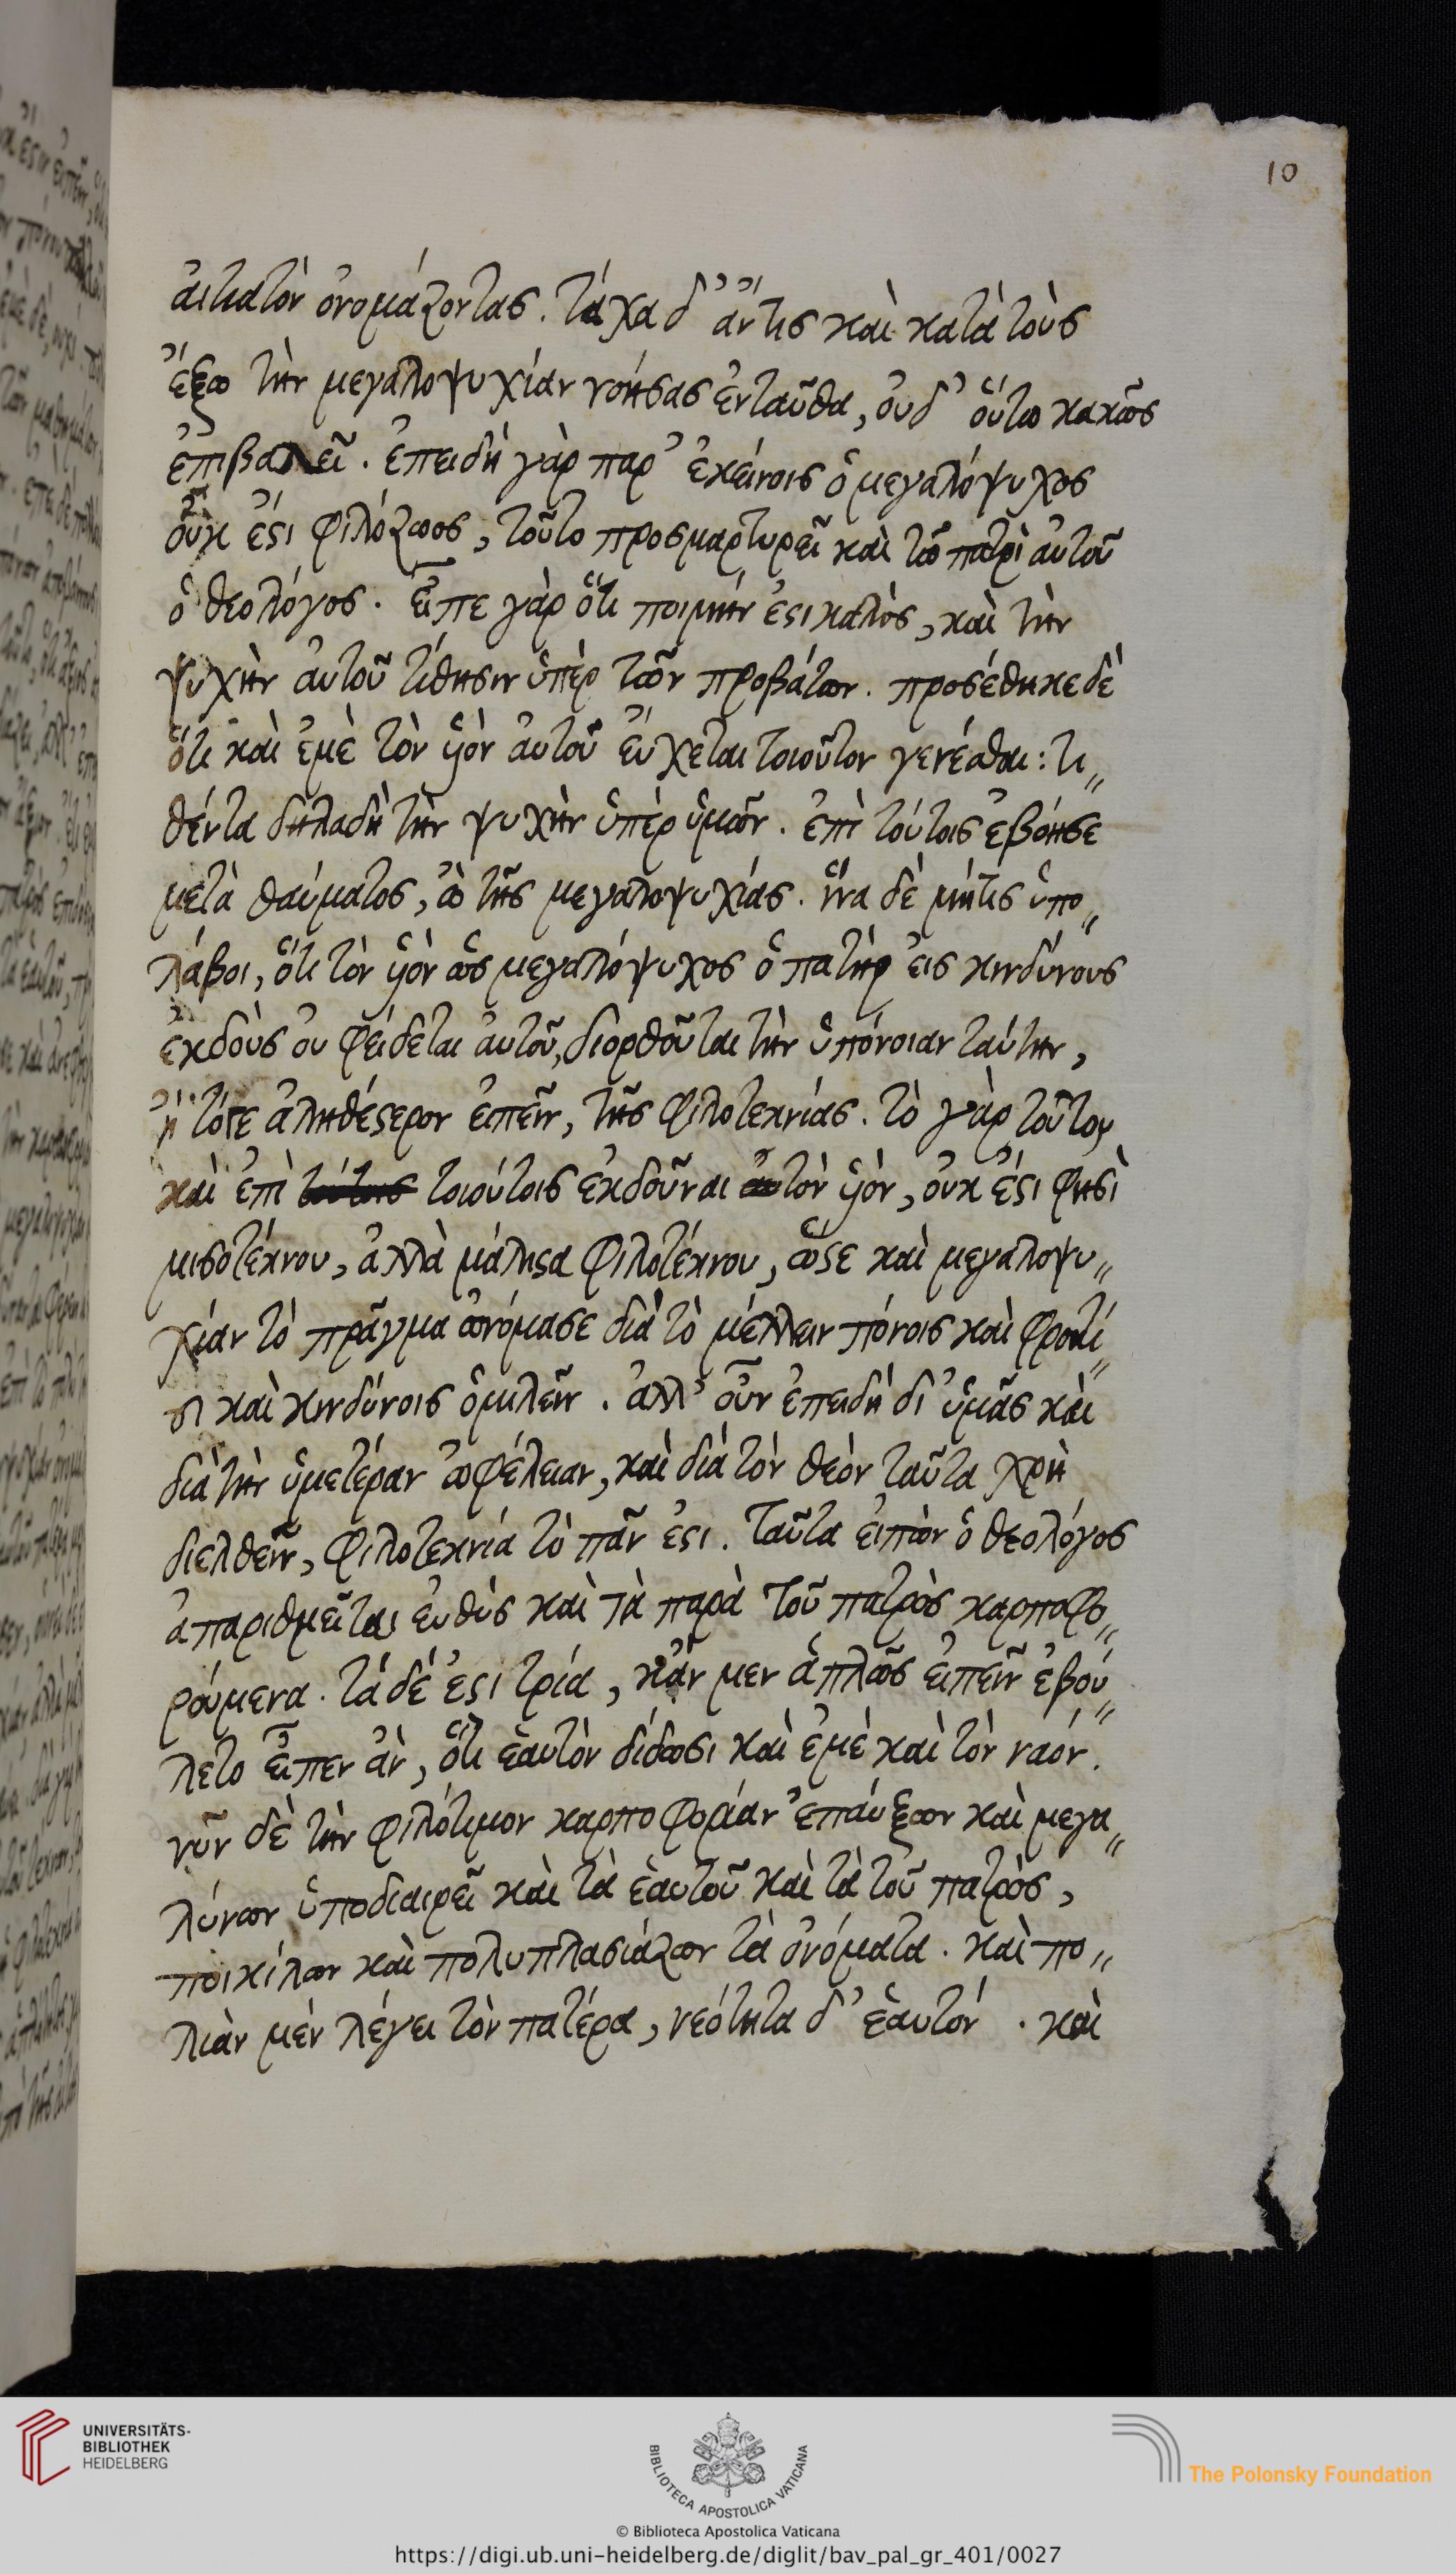 10
ἀιτιατὸν ὀνομάζοντας. τάχα δ᾽ ἄν τις καὶ κατὰ τοὺς
ἔξω τὴν μεγαλοψυχίαν νοήσας ἐνταῦθα, ὀυδ᾽ ὅυτω κακῶς
ἐπιβαλεῖ. ἐπειδὴ γὰρ παρ᾽ ἐκείνοις ὁ μεγαλόψυχος
ὀυκ ἔϛι φιλόζωος, τοῦτο προσμαρτυρεῖ καὶ τῶ πατρὶ ἀυτοῦ
ὁ θεολόγος. εἶπε γὰρ ὅτι ποιμήν ἐϛι καλὸς, καὶ τὴν
ψυχὴν ἀυτοῦ τίθησιν ὑπὲρ τῶν προβάτων. προσέθηκε δὲ
ὅτι καὶ ἐμὲ τὸν ὑὸν ἀυτοῦ ἔυχεται τοιοῦτον γενέσθαι: τι〃
θέντα δηλαδὴ τὴν ψυχὴν ὑπὲρ ὑμῶν. ἐπὶ τούτοις ἐβόησε
μετὰ θαύματος, ὢ τῆς μεγαλοψυχίας. ἵνα δὲ μήτις ὑπο〃
λάβοι, ὅτι τὸν ὑὸν ὡς μεγαλόψυχος ὁ πατὴρ εἰς κινδύνους
ἐκδοὺς ου φείδεται ἀυτοῦ, διορθοῦται τὴν ὑπόνοιαν ταύτην,
ἢ τότε ἀληθέϛερον ἐιπεῖν, τῆς φιλοτεκνίας. τὸ γὰρ τοῦτον
καὶ ἐπὶ τούτοις τοιούτοις ἐκδοῦναι ἀυτὸν ὑὸν, ὀυκ ἔϛι φησὶ
μισοτέκνου, ἀλλὰ μάλιϛα φιλοτέκνου, ὥϛε καὶ μεγαλοψυ〃
χίαν τὸ πρᾶγμα ὠνόμασε διὰ τὸ μέλλειν πόνοις καὶ φροντί〃
σι καὶ κινδύνοις ὁμιλεῖν. ἀλλ᾽ οὖν ἐπειδὴ δι᾽ ὑμᾶς καὶ
διὰ τὴν ὑμετέραν ὠφέλειαν, καὶ διὰ τὸν θεὸν ταῦτα χρὴ
διελθεῖν, φιλοτεκνία τὸ πᾶν ἐϛι. ταῦτα ἐιπὼν ὁ θεολόγος
ἀπαριθμεῖται ευθὺς καὶ τὰ παρὰ τοῦ πατρὸς καρποφο〃
ρούμενα. τὰ δέ ἐϛι τρία, κἂν μεν ἁπλῶς ἐιπεῖν ἐβού〃
λετο εἶπεν ἂν, ὅτι ἑαυτὸν δίδωσι καὶ ἐμὲ καὶ τὸν ναόν.
νῦν δὲ τὴν φιλότιμον καρποφορίαν ἐπάυξων καὶ μεγα〃
λύνων ὑποδιαιρεῖ καὶ τὰ ἑαυτοῦ καὶ τὰ τοῦ πατρὸς,
ποικίλων καὶ πολυπλασιάζων τὰ ὀνόματα. καὶ πο〃
λιὰν μέν λέγει τὸν πατέρα, νεότητα δ᾽ ἑαυτόν. καὶ
UNIVERSITÄTS-
BIBLIOTHEK
HEIDELBERG
BIBLIOTECA APOSTOLICA VATICANA
The Polonsky Foundation
© Biblioteca Apostolica Vaticana
https://digi.ub.uni-heidelberg.de/diglit/bav_pal_gr_401/0027